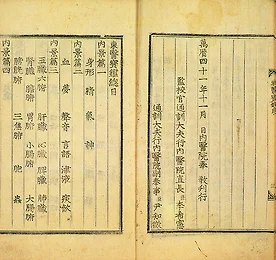 萬曆四十一年十一月 日內醫院奉 教刊行
監校官通訓大夫行內醫院直長 李希憲
通訓大夫行內醫院副奉事 尹知微
東醫寶鑑總目
內景篇一
身形 精 氣 神
內景篇二
血 夢 聲音 言語 津液 痰飲
內景篇三
五臟六腑 肝臟 心臟 脾臟 肺臟
腎臟 膽腑 胃腑 小腸腑 大腸腑
膀胱腑 三焦腑 胞 蟲
內景篇四